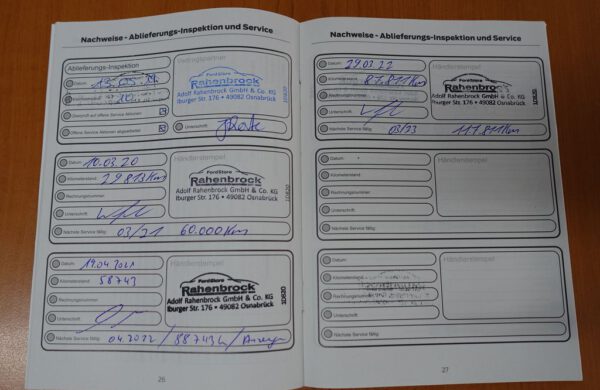 Nachweise - Ablieferungs-Inspektion und Service
Ablieferungs-Inspektion
Vertragspartner
Datum
Kilometerstand
10
Überprüft auf offene Service Aktionen
Offene Service Aktionen abgearbeitet
Unterschrift
FordStore
Rahenbrock
Adolf Rahenbrock GmbH & Co. KG
Iburger Str. 176 • 49082 Osnabrück
Datum 10.03.20
Kilometerstand 29.813 Km
Rechnungsnummer
Unterschrift
Nächste Service fällig 03/21 60.000 Km
Händlerstempel
FordStore
Rahenbrock
Adolf Rahenbrock GmbH & Co. KG
Iburger Str. 176 • 49082 Osnabrück
Datum 19.04.2021
Kilometerstand 58743
Rechnungsnummer
Unterschrift
Nächste Service fällig 04.2022 / 88743 /
Händlerstempel
FordStore
Rahenbrock
Adolf Rahenbrock GmbH & Co. KG
Iburger Str. 176 • 49082 Osnabrück
26
Nachweise - Ablieferungs-Inspektion und Service
Datum 29.03.22
Kilometerstand 87.811 Km
Rechnungsnummer
Unterschrift
Nächste Service fällig 03/23 117.811 Km
Händlerstempel
FordStore
Rahenbrock
Adolf Rahenbrock GmbH & Co. KG
Iburger Str. 176 • 49082 Osnabrück
Datum
Kilometerstand
Rechnungsnummer
Unterschrift
Nächste Service fällig
Händlerstempel
Datum
Kilometerstand
Rechnungsnummer
Unterschrift
Nächste Service fällig
Händlerstempel
27